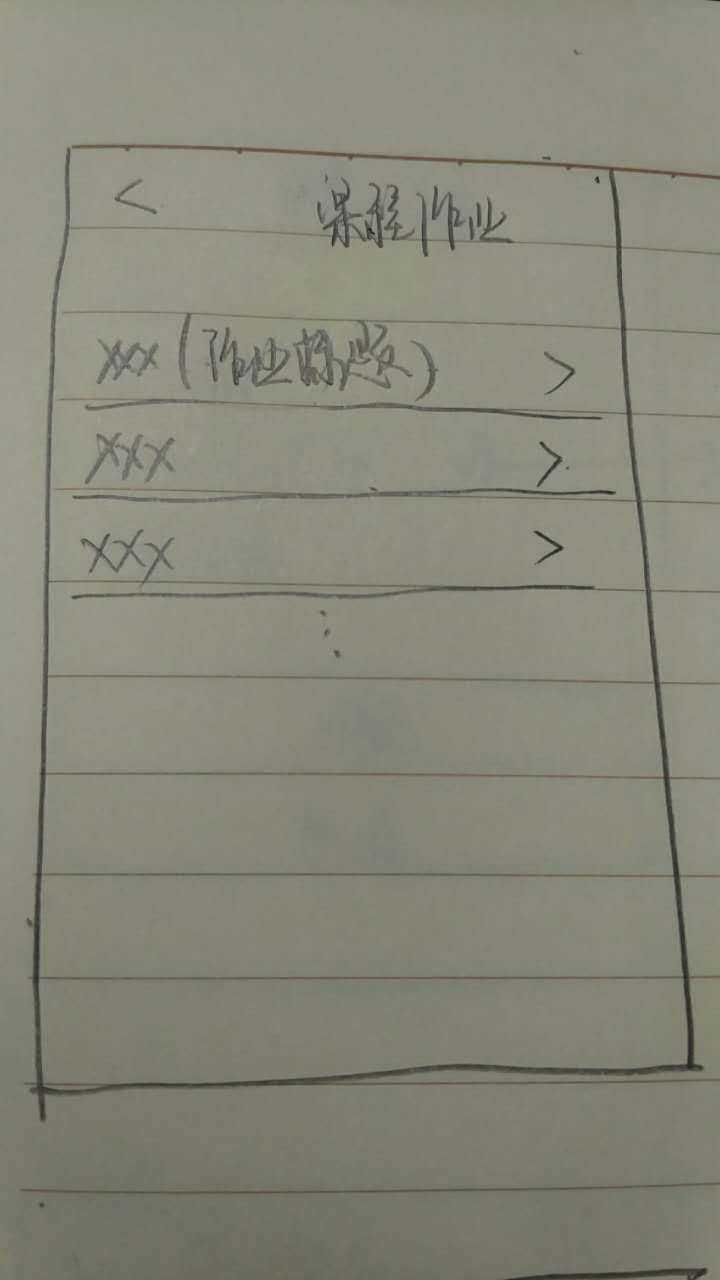 < 课程作业
xxx (作业标题) >
xxx >
xxx >
⋮